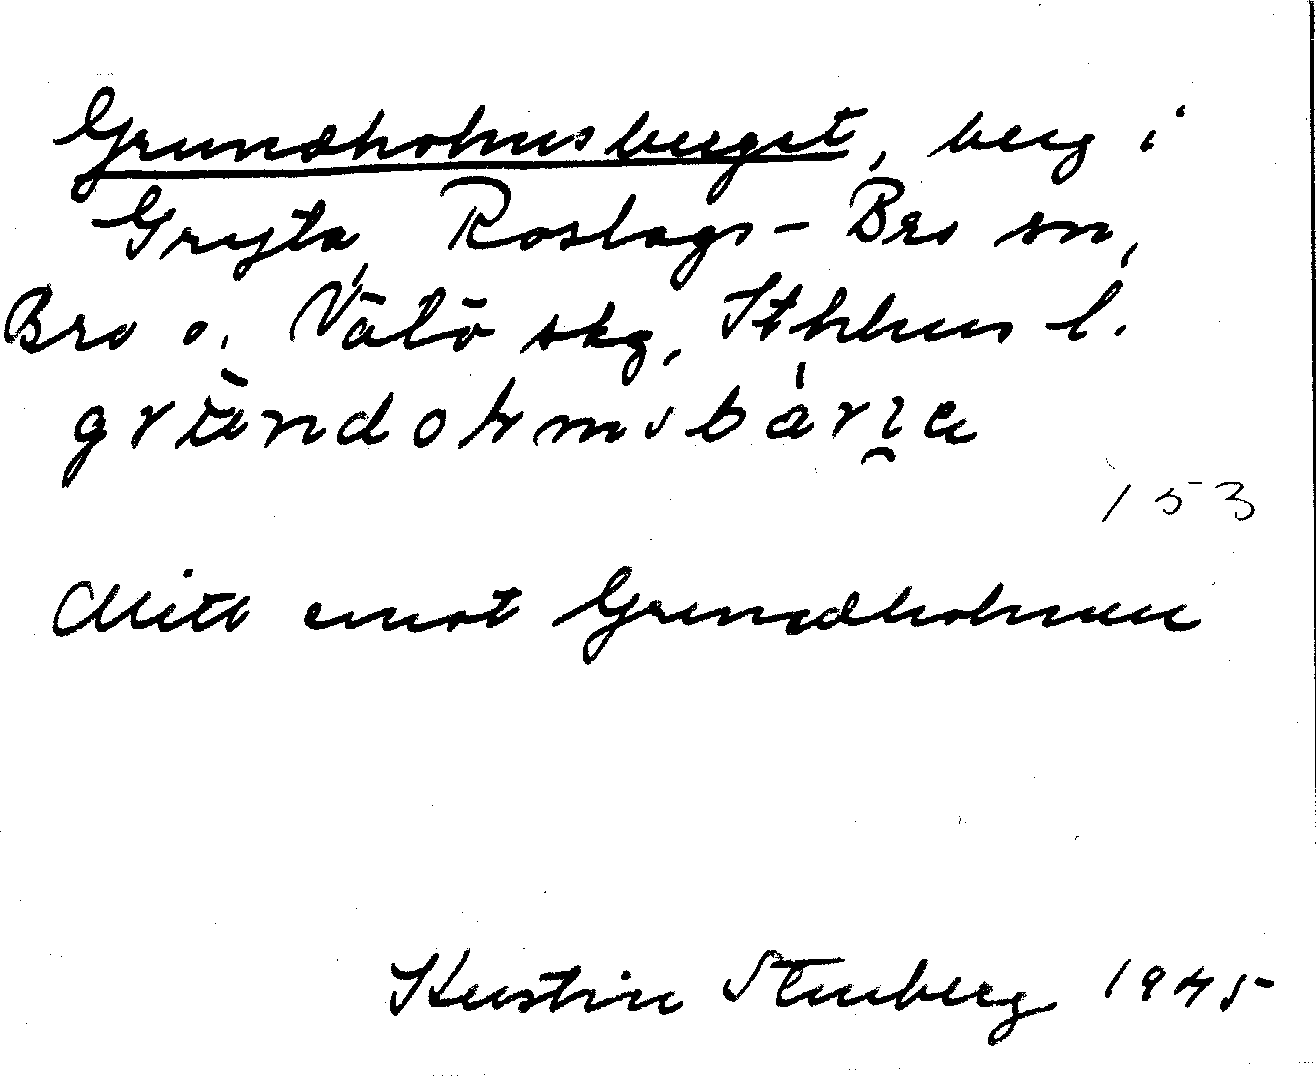 Grundholmsberget, berg i
Gryta, Roslags-Bro sn,
Bro o. Vätö skg, Sthlms l.
153
Mitt emot Grundholmen
Kerstin Stenberg 1945